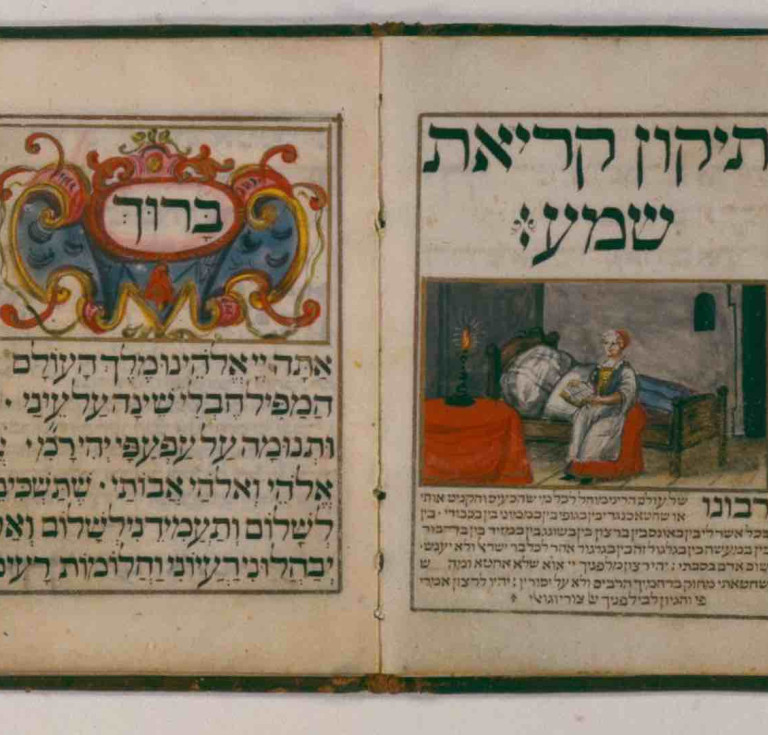 תיקון קריאת
שמע:
רבונו של עולם הריני מוחל לכל מי שהכעיס והקניט אותי
או שחטא כנגדי בין בגופי בין בממוני בין בכבודי בין
בכל אשר לי בין באונס בין ברצון בין בשוגג בין במזיד בין בדיבור
בין במעשה בין בגלגול זה בין בגלגול אחר לכל בר ישראל ולא יענש
שום אדם בסבתי: יהי רצון מלפניך יי שלא אחטא ומה ש
שחטאתי מחוק ברחמיך הרבים ולא על יסורין: יהיו לרצון אמרי
פי והגיון לבי לפניך צורי וגואלי
בָּרוּךְ
אַתָּה יְיָ אֱלֹהֵינוּ מֶלֶךְ הָעוֹלָם
הַמַּפִּיל חֶבְלֵי שֵׁינָה עַל עֵינַי ·
וּתְנוּמָה עַל עַפְעַפַּי יְהִי רָ מִ ·
אֱלֹהַי וֵאלֹהֵי אֲבוֹתַי · שֶׁתַּשְׁכִּי
לְשָׁלוֹם וְתַעֲמִידֵנִי לְשָׁלוֹם וְאַ
יְבַהֲלוּנִי רַעְיוֹנַי וַחֲלוֹמוֹת רָעִי